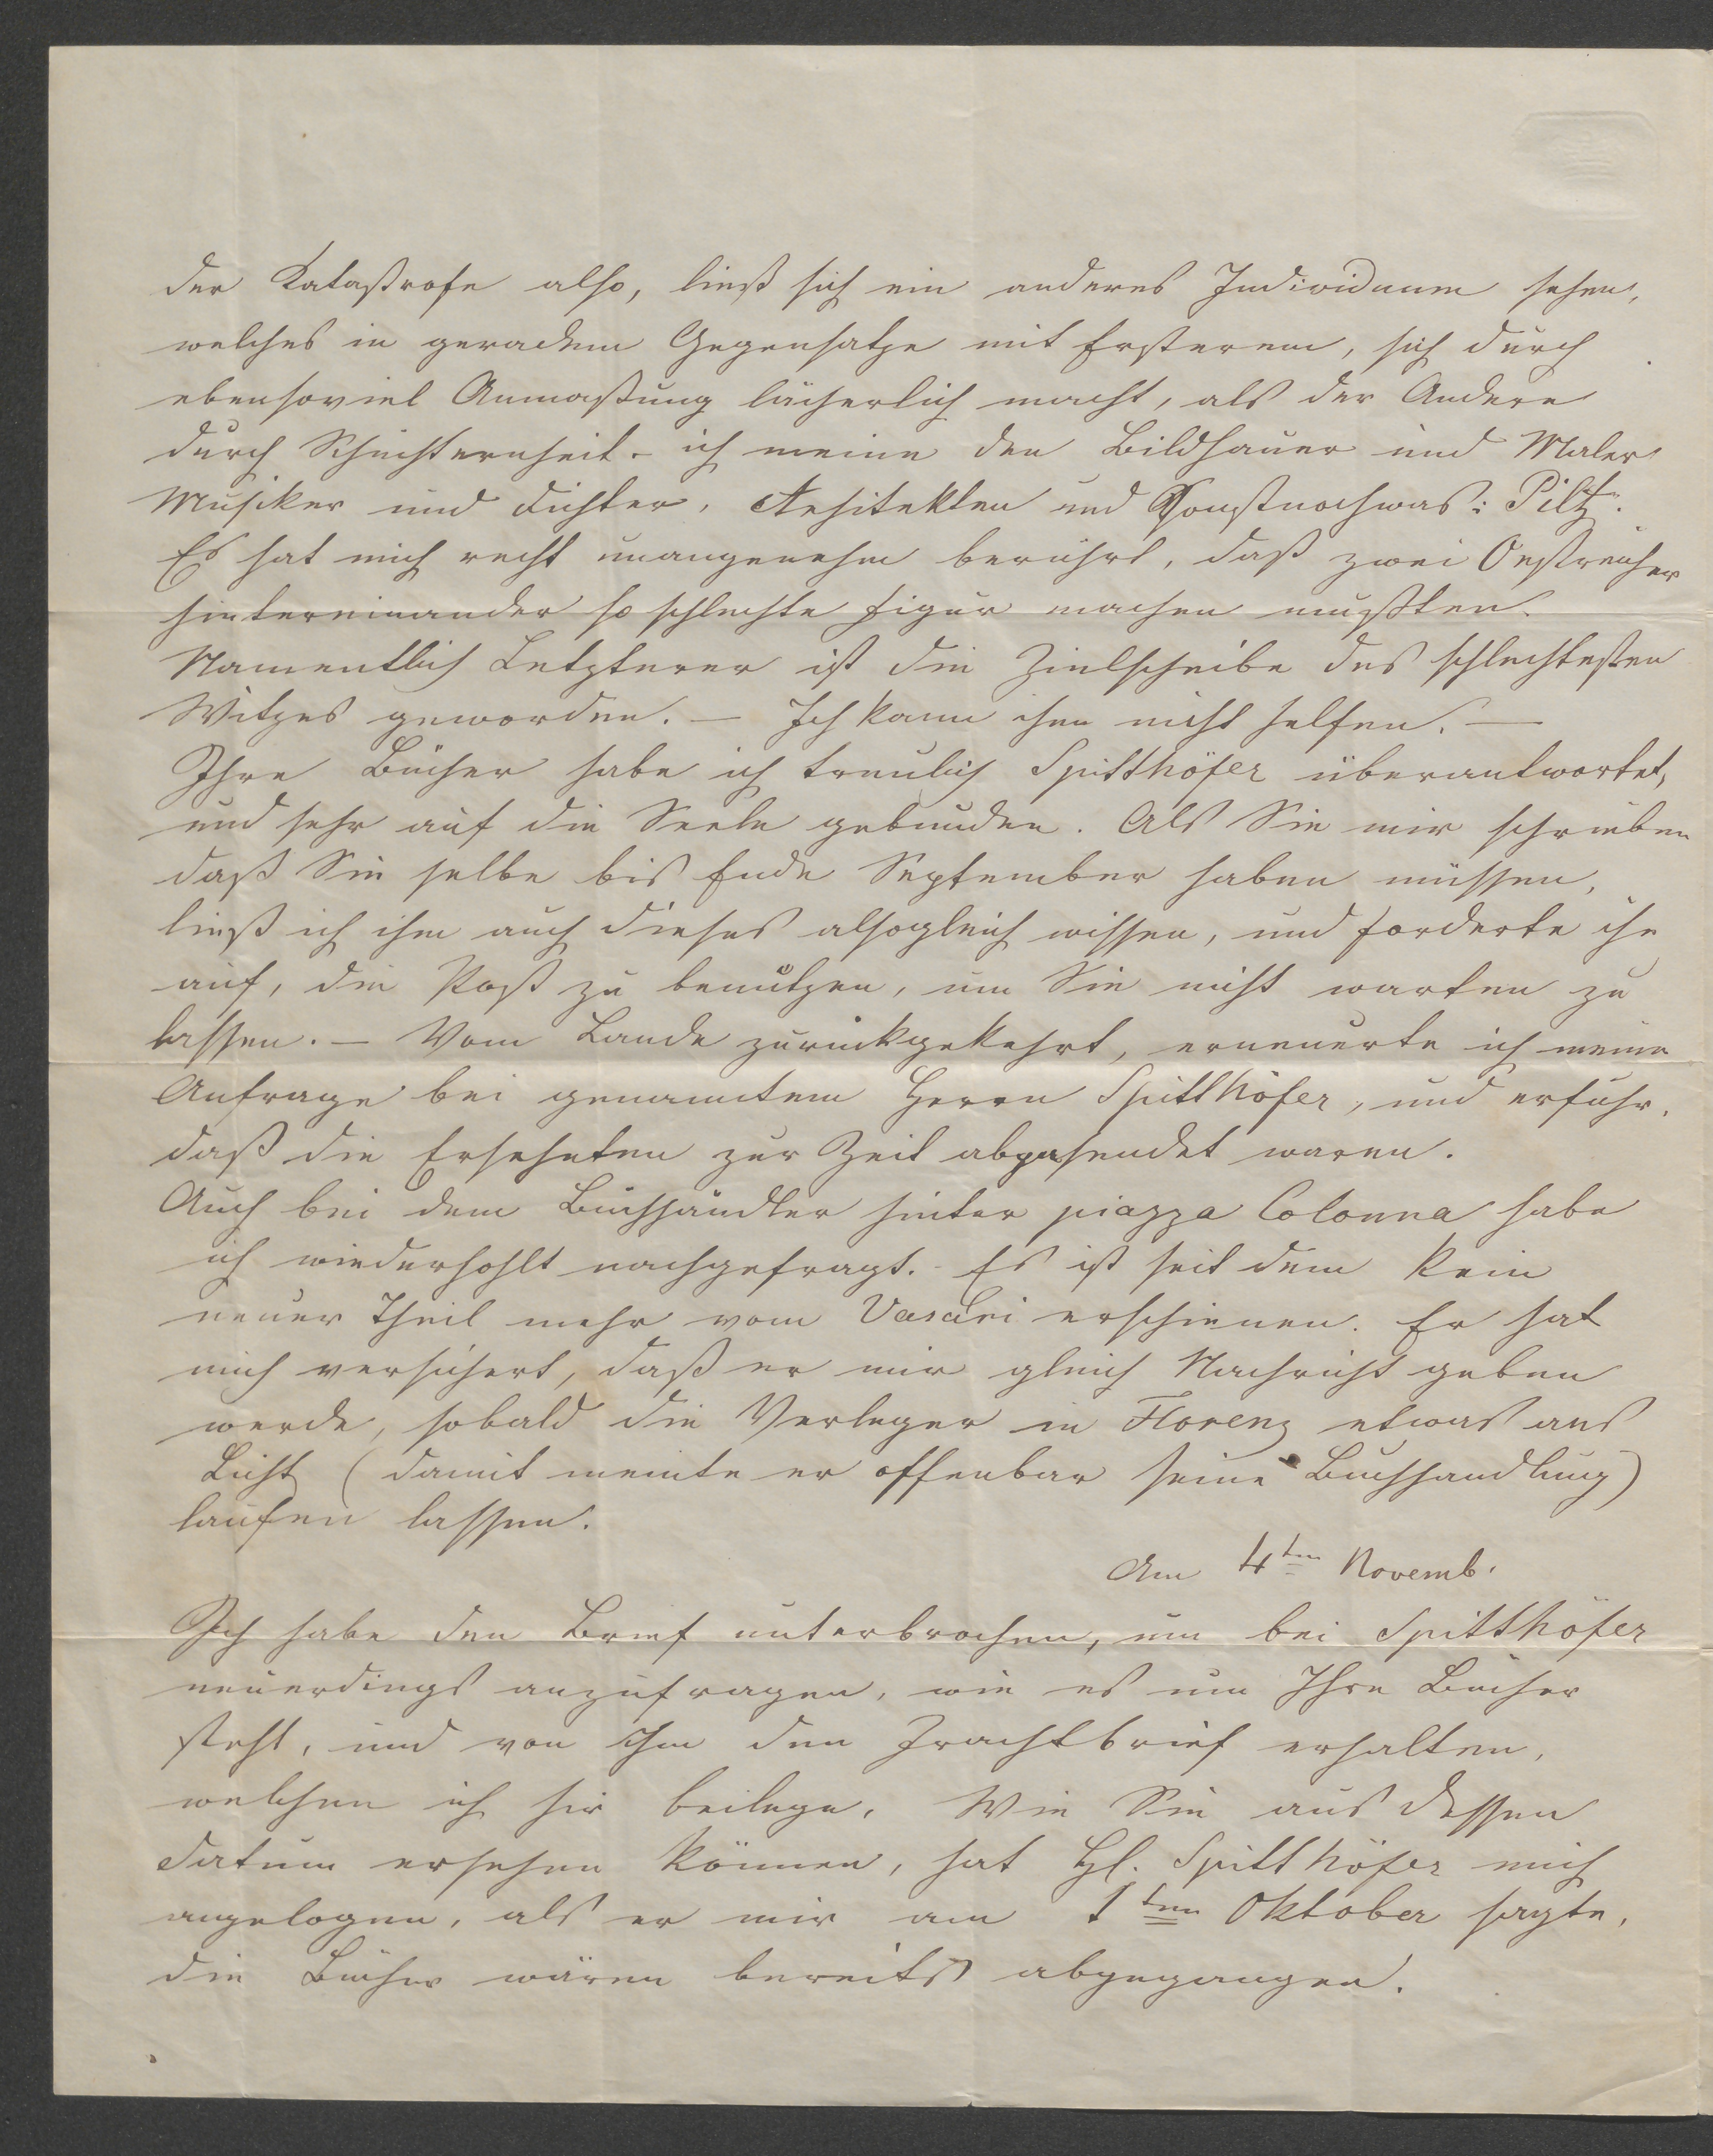 der Katastrofe also, ließ sich ein anderes Individuum sehen,
welches in geradem Gegensatze mit Ersterem, sich durch
ebensoviel Anmaßung lächerlich macht, als der Andere
durch Schüchternheit. – ich meine den Bildhauer und Maler
Musiker und Dichter, Architekten und Sonstnochwas: Pilz.
Es hat mich recht unangenehm berührt, daß zwei Oestreicher
hintereinander so schlechte Figur machen mußten.
Namentlich Letzterer ist die Zielscheibe des schlechtesten
Witzes geworden. – Ich kann ihm nicht helfen. –
Ihre Bücher habe ich treulich Spitthöfer überantwortet,
und sehr auf die Seele gebunden. Als Sie mir schrieben
daß Sie selbe bis Ende September haben müssen,
ließ ich ihm auch dieses alsogleich wissen, und forderte ihn
auf, die Post zu benützen, um Sie nicht warten zu
lassen. – Vom Lande zurückgekehrt, erneuerte ich meine
Anfrage bei genanntem Herrn Spitthöfer, und erfuhr,
daß die Ersehnten zur Zeit abgesendet waren.
Auch bei dem Buchhändler hinter piazza Colonna habe
ich wiederhohlt nachgefragt. – Es ist seit dem kein
neuer Theil mehr vom Vasari erschienen. Er hat
mich versichert, daß er mir gleich Nachricht geben
werde, sobald die Verleger in Florenz etwas ans
Licht (damit meinte er offenbar seine Buchhandlung)
laufen lassen.
Am 4ten Novemb.
Ich habe den Brief unterbrochen, um bei Spitthöfer
neuerdings anzufragen, wie es um Ihre Bücher
steht, und von ihm den Frachtbrief erhalten,
welchen ich hir beilege. Wie Sie aus dessen
Datum ersehen können, hat H. Spitthöfer mich
angelogen, als er mir am 1ten Oktober sagte,
die Bücher wären bereits abgegangen.